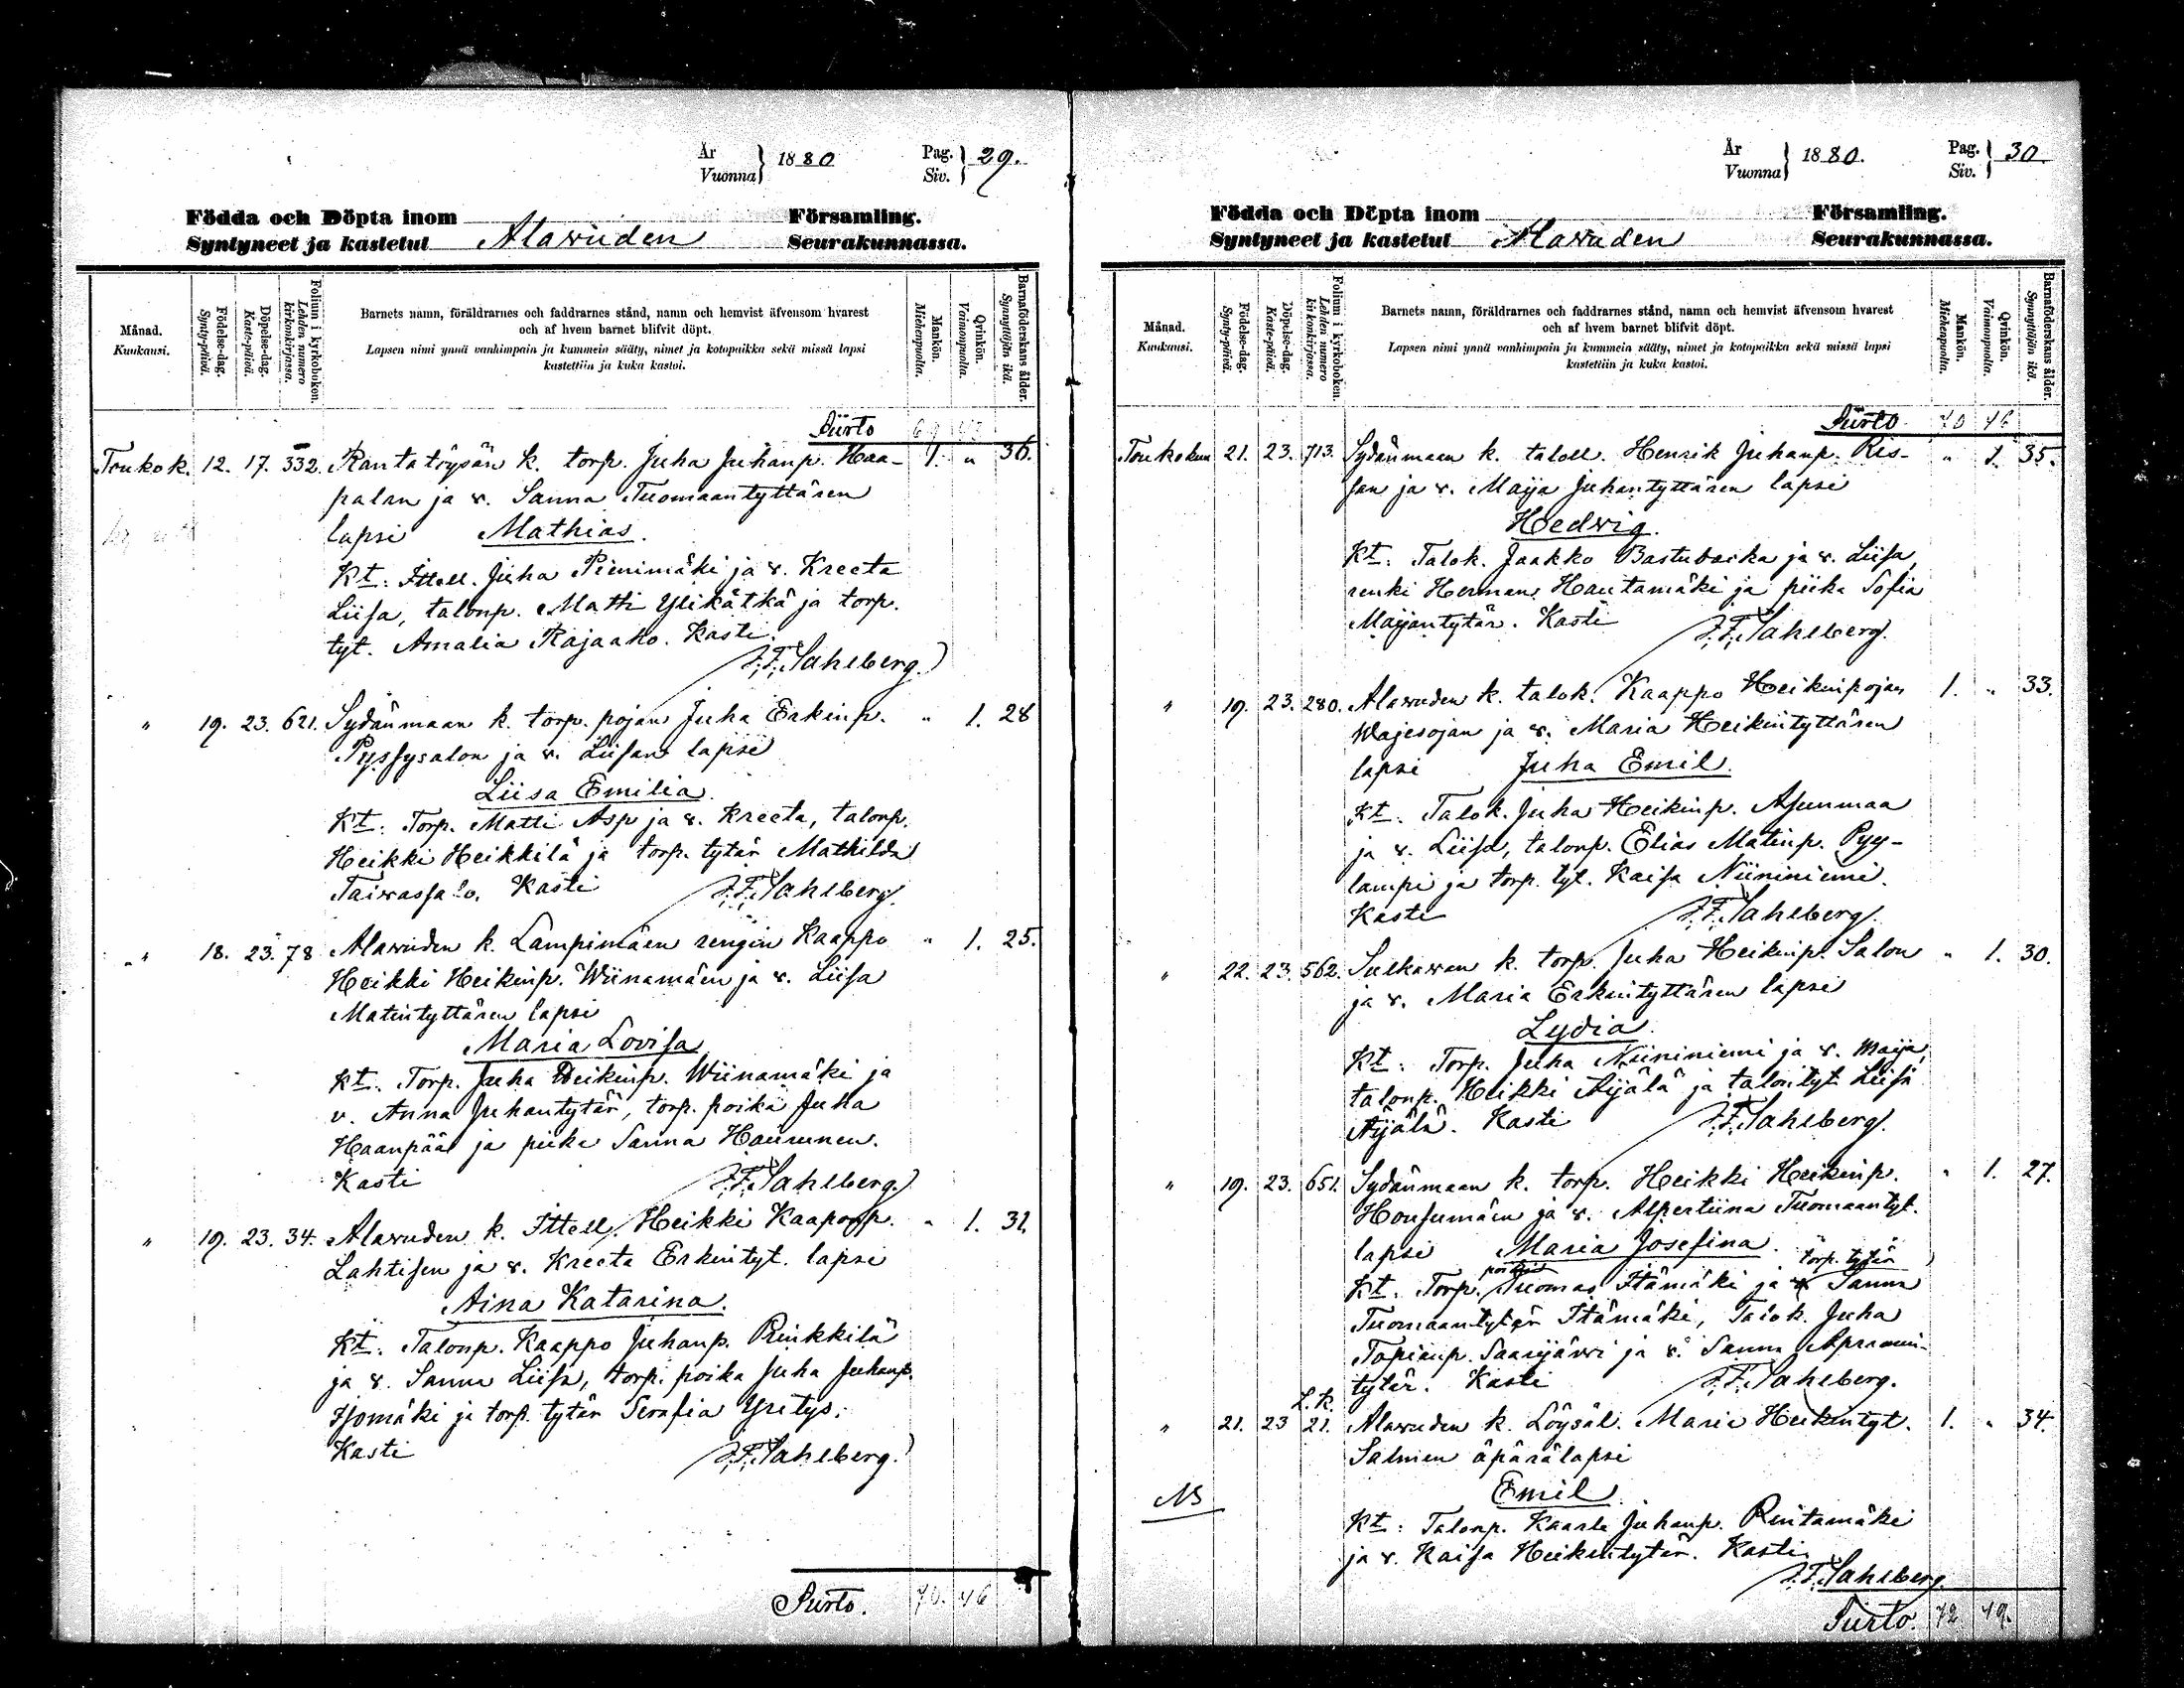 År
Vuonna } 1880
Pag.
Siv. } 29.
Födda och Döpta inom Församling.
Syntyneet ja kastetut Alawuden Seurakunnassa.
Månad.
Kuukausi.
Födelse-dag.
Synty-päivä.
Döpelse-dag.
Kaste-päivä.
Folium i kyrkoboken.
Lehden numero kirkonkirjassa.
Barnets namn, föräldrarnes och faddrarnes stånd, namn och hemvist äfvensom hvarest
och af hvem barnet blifvit döpt.
Lapsen nimi ynnä vanhimpain ja kummein sääty, nimet ja kotopaikka sekä missä lapsi
kastettiin ja kuka kastoi.
Mankön.
Miehenpuolta.
Qvinkön.
Vaimonpuolta.
Barnaföderskans ålder.
Synnyttäjän ikä.
Siirto 69 43
Toukok. 12. 17. 332. Rantatöysän k. torp. Juha Juhanp. Haa- 1. " 36.
palan ja v. Sanna Tuomaantyttären
lapsi Mathias.
Kt: Ittell. Juha Pienimäki ja v. Kreeta
Liisa, talonp. Matti Ylikätkä ja torp.
tyt. Amalia Rajaaho. Kasti
J.F. Sahlberg.
" 19. 23. 621. Sydänmaan k. torp. pojan Juha Erkinp. " 1. 28
Pyssysalon ja v. Liisan lapsi
Liisa Emilia.
Kt: Torp. Matti Asp ja v. Kreeta, talonp.
Heikki Heikkilä ja torp. tytär Mathilda
Taiwassalo. Kasti J.F. Sahlberg.
" 18. 23. 78 Alawuden k. Lampimäen rengin Kaappo " 1. 25.
Heikki Heikinp. Wiinamäen ja v. Liisa
Matintyttären lapsi
Maria Lovisa
Kt: Torp. Juha Heikinp. Wiinamäki ja
v. Anna Juhantytär, torp. poika Juha
Haanpää ja piika Sanna Haurunen.
Kasti J.F. Sahlberg.
" 19. 23. 34. Alawuden k. Ittell. Heikki Kaaponp. " 1. 31.
Lahtisen ja v. Kreeta Erkintyt. lapsi
Aina Katarina.
Kt: Talonp. Kaappo Juhanp. Rinkkilä
ja v. Sanna Liisa, torp. poika Juha Juhanp.
Isomäki ja torp. tytär Serafia Yritys.
Kasti J.F. Sahlberg.
Siirto. 70. 46
År
Vuonna } 1880.
Pag.
Siv. } 30.
Födda och Döpta inom Församling.
Syntyneet ja kastetut Alawuden Seurakunnassa.
Månad.
Kuukausi.
Födelse-dag.
Synty-päivä.
Döpelse-dag.
Kaste-päivä.
Folium i kyrkoboken.
Lehden numero kirkonkirjassa.
Barnets namn, föräldrarnes och faddrarnes stånd, namn och hemvist äfvensom hvarest
och af hvem barnet blifvit döpt.
Lapsen nimi ynnä vanhimpain ja kummein sääty, nimet ja kotopaikka sekä missä lapsi
kastettiin ja kuka kastoi.
Mankön.
Miehenpuolta.
Qvinkön.
Vaimonpuolta.
Barnaföderskans ålder.
Synnyttäjän ikä.
Siirto 70 46
Toukokuu 21. 23. 713. Sydänmaan k. taloll. Henrik Juhanp. Ris- " 1. 35.
san ja v. Maija Juhantyttären lapsi
Hedwig.
Kt: Talok. Jaakko Bastubacka ja v. Liisa,
renki Herman Hautamäki ja piika Sofia
Maijantytär. Kasti J.F. Sahlberg.
" 19. 23. 280. Alawuden k. talok. Kaappo Heikinpojan 1. " 33.
Wajesojan ja v. Maria Heikintyttären
lapsi Juha Emil.
Kt: Talok. Juha Heikinp. Asunmaa
ja v. Liisa, talonp. Elias Matinp. Pyy-
lampi ja torp. tyt. Kaisa Niininiemi.
Kasti J.F. Sahlberg.
" 22. 23. 562. Sulkawan k. torp. Juha Heikinp. Salon " 1. 30.
ja v. Maria Erkintyttären lapsi
Lydia.
Kt: Torp. Juha Niininiemi ja v. Maija,
talonp. Heikki Äijälä ja talon tyt. Liisa
Äijälä. Kasti J.F. Sahlberg.
" 19. 23. 651. Sydänmaan k. torp. Heikki Heikinp. " 1. 27.
Housumäen ja v. Alpertiina Tuomaantyt.
lapsi Maria Josefina.
torp. tytär
Kt: Torp. Tuomas Itämäki ja v. Sanna
Tuomaantytär Itämäki, Talok. Juha
Topianp. Saarijärvi ja v. Sanna Apramin-
tytär. Kasti J.F. Sahlberg.
L.K.
" 21. 23 21. Alawuden k. Löysäl. Maria Heikintyt. 1. " 34.
Salmen äpärälapsi
NB Emil
Kt: Talonp. Kaarle Juhanp. Rintamäki
ja v. Kaisa Heikintytär. Kasti
J.F. Sahlberg.
Siirto. 72 49.